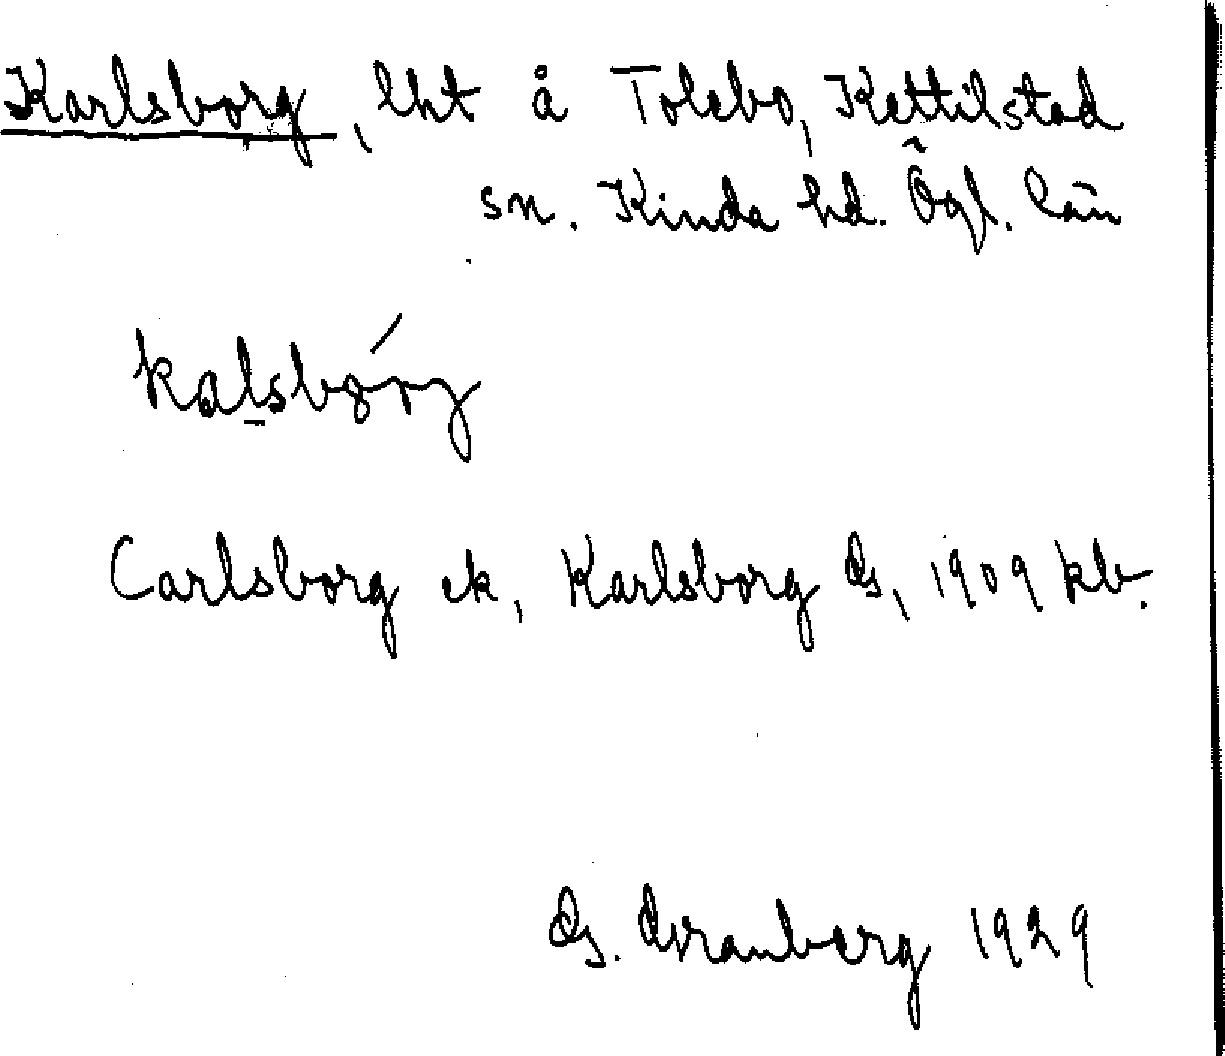 Karlsborg, lht å Tolebo, Kettilstad
sn. Kinda hd. Ögl. län
kalsbórg
Carlsborg ek, Karlsborg G, 1909 kb.
G. Granberg 1929